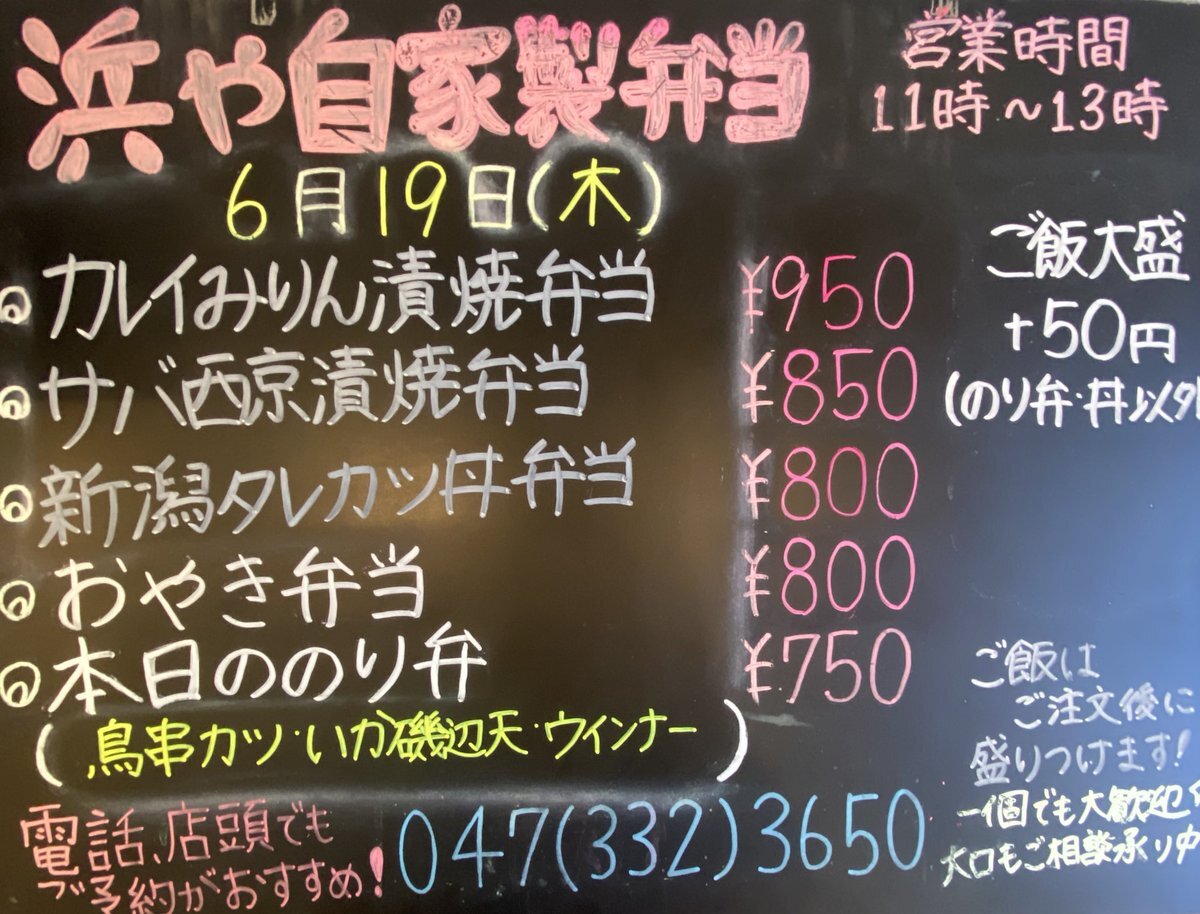 浜や自家製弁当
営業時間
11時～13時
6月19日(木)
カレイみりん漬焼弁当 ¥950
サバ西京漬焼弁当 ¥850
新潟タレカツ丼弁当 ¥800
おやき弁当 ¥800
本日ののり弁 ¥750
(鳥串カツ・いか磯辺天・ウインナー)
ご飯大盛
+50円
(のり弁・丼以外
ご飯は
ご注文後に
盛りつけます!
一個でも大歓迎
大口もご相談承り中
電話、店頭でも
ご予約がおすすめ!
047(332)3650